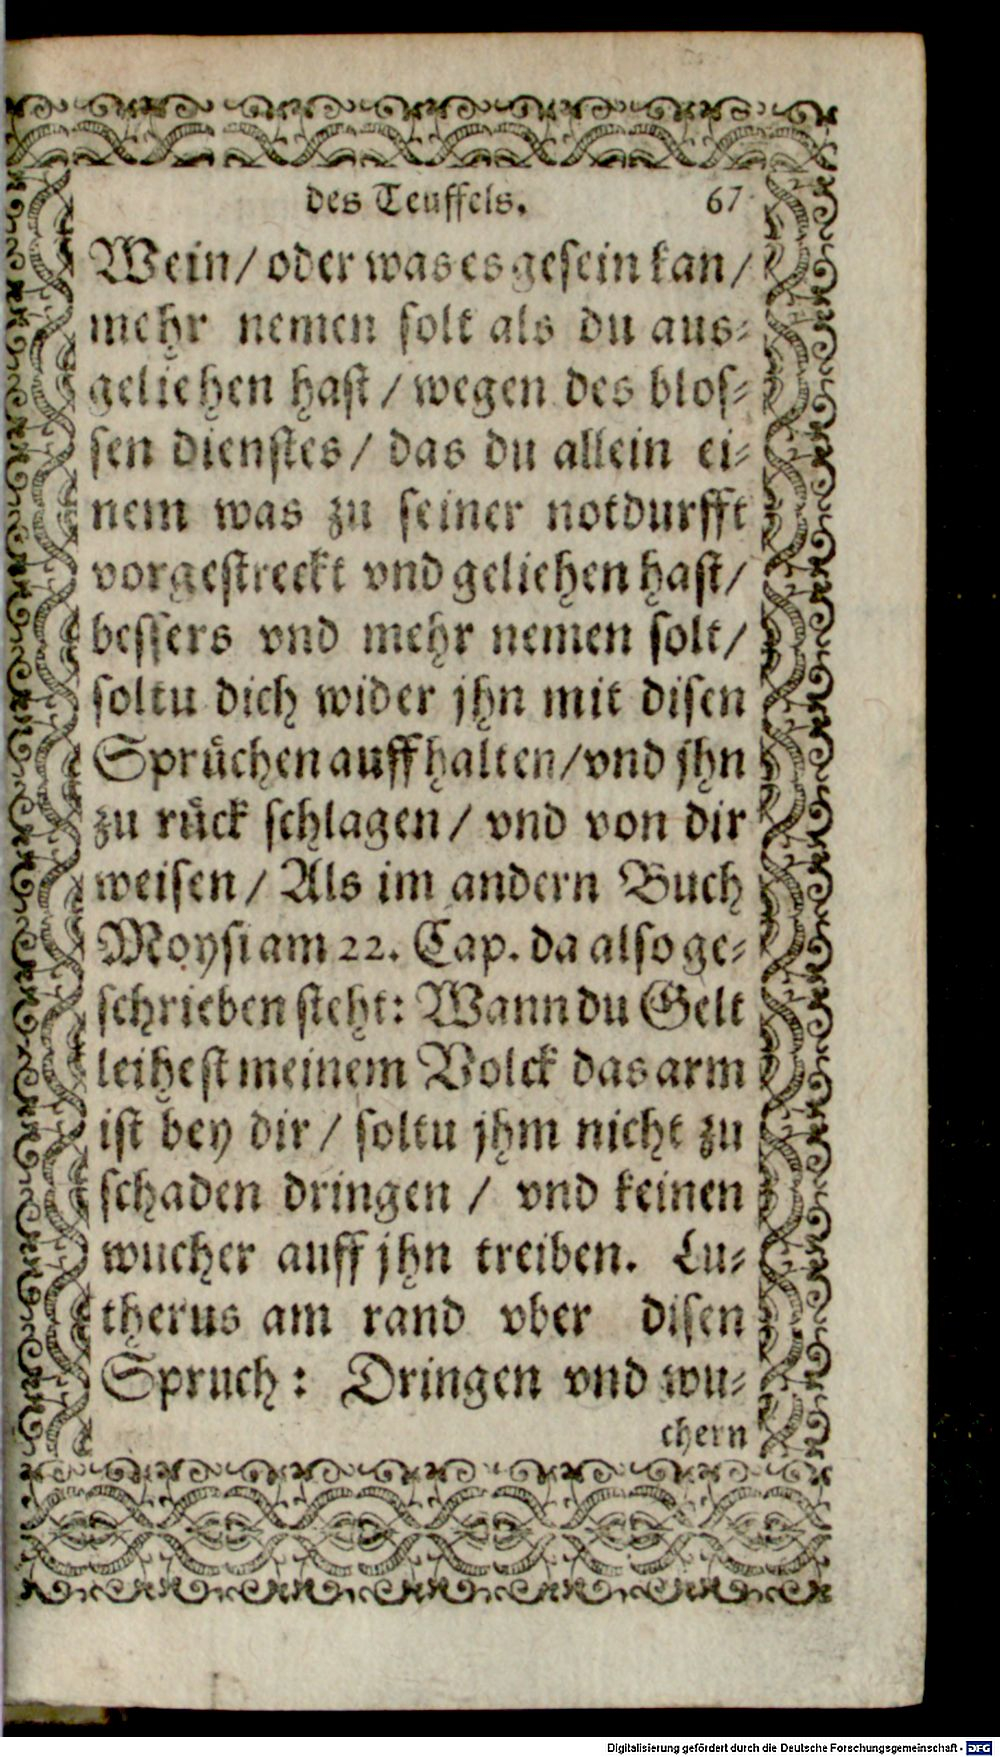 des Teuffels. 67
Wein/ oder was es gesein kan/
mehr nemen solt als du aus⸗
geliehen hast / wegen des blos⸗
sen dienstes/ das du allein ei⸗
nem was zu seiner notdurfft
vorgestreckt vnd geliehen hast/
bessers vnd mehr nemen solt/
soltu dich wider jhn mit disen
Sprůchen auff halten/vnd jhn
zu růck schlagen/ vnd von dir
weisen/ Als im andern Buch
Moysi am 22. Cap. da also ge⸗
schrieben steht: Wann du Gelt
leihest meinem Volck das arm
ist bey dir / soltu jhm nicht zu
schaden dringen / vnd keinen
wucher auff jhn treiben. Lu⸗
therus am rand vber disen
Spruch: Dringen vnd wu⸗
chern
Digitalisierung gefördert durch die Deutsche Forschungsgemeinschaft - DFG